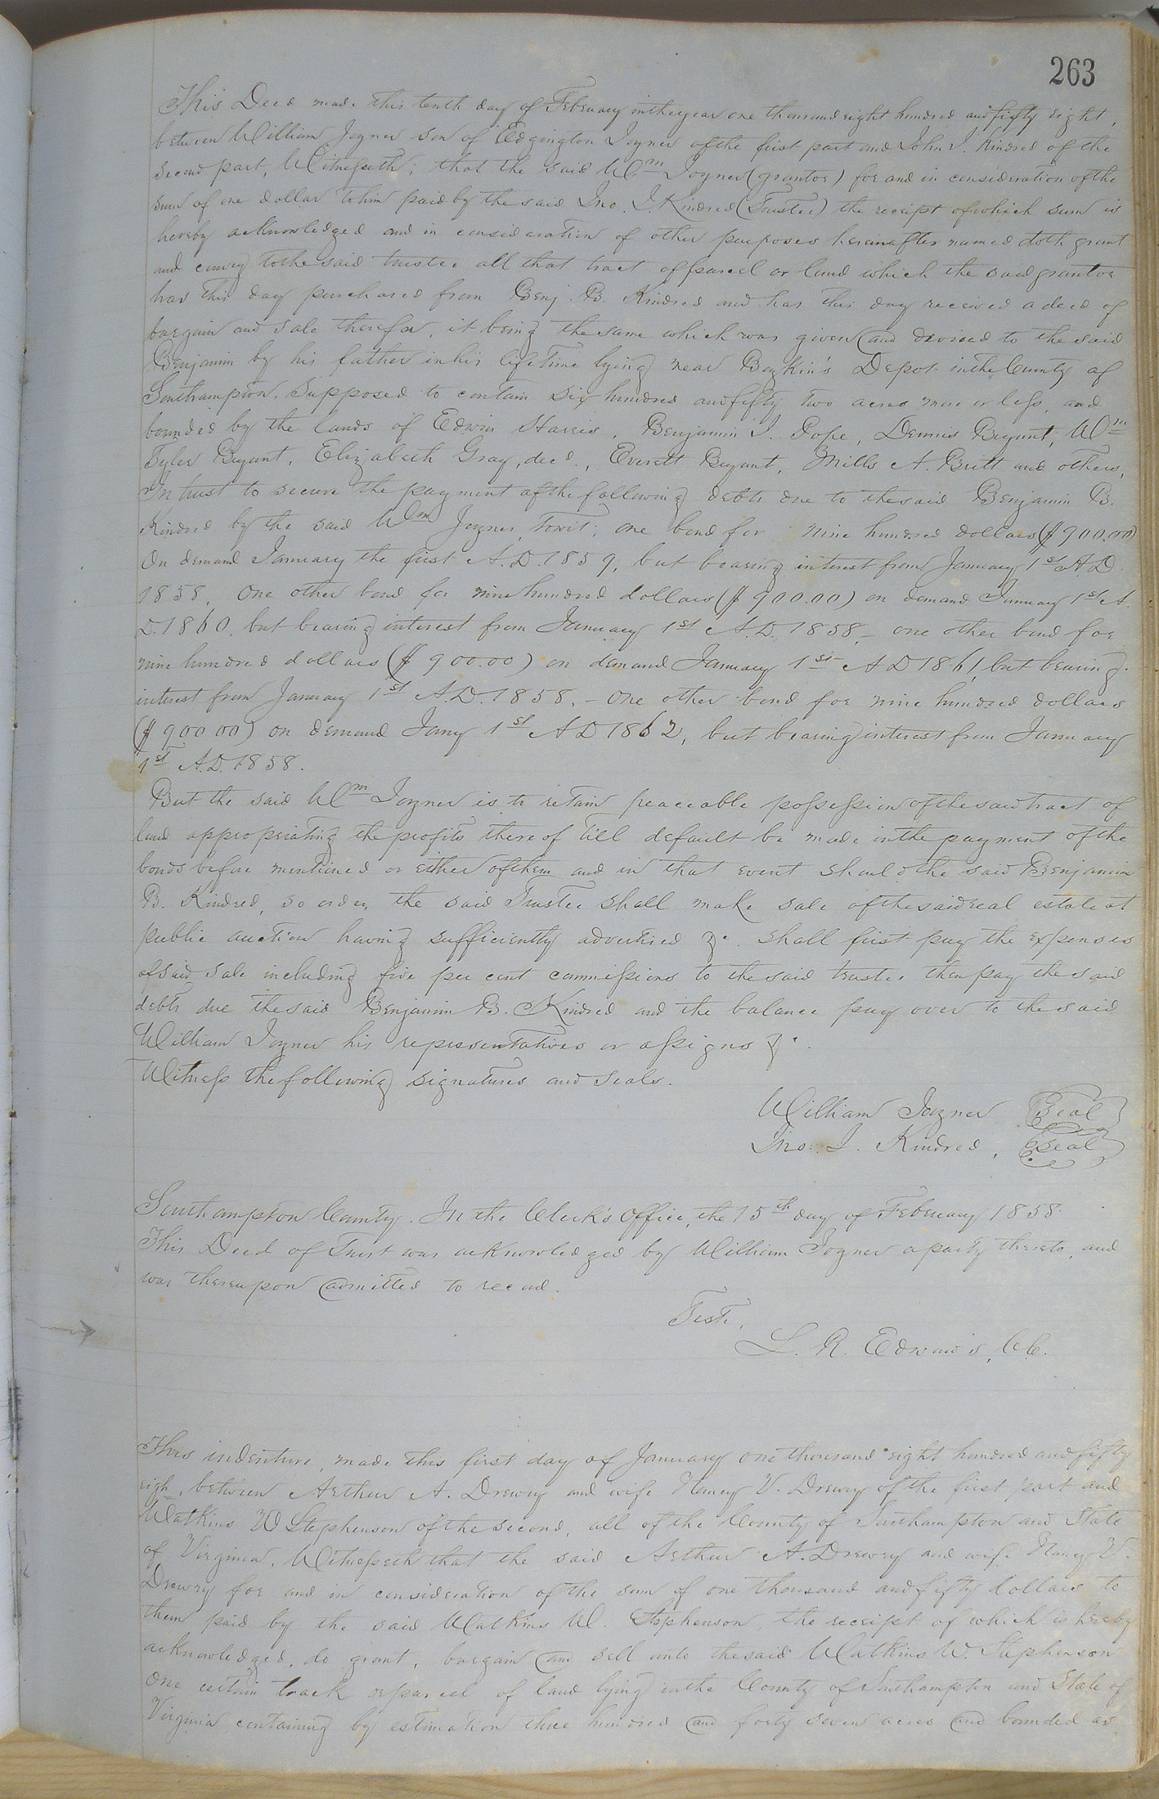 263
This Deed made this tenth day of February in the year one thousand eight hundred and fifty eight,
between William Joyner son of Edgington Joyner of the first part and John J. Kindred of the
second part, Witnesseth; that the said Wm Joyner (grantor) for and in consideration of the
sum of one dollar to him paid by the said Jno. J. Kindred (Trustee) the receipt of which sum is
hereby acknowledged and in consideration of other purposes hereinafter named doth grant
and convey to the said trustee all that tract of parcel or land which the said grantor
has this day purchased from Benj. B. Kindred and has this day received a deed of
bargain and sale therefor, it being the same which was given and devised to the said
Benjamin by his father in his lifetime lying near Boykin's Depot in the County of
Southampton. Supposed to contain six hundred and fifty two acres more or less, and
bounded by the lands of Edwin Harris, Benjamin J. Pope, Dennis Bryant, Wm
Tyler Bryant, Elizabeth Gray, decd., Everett Bryant, Mills A. Britt and others,
In trust to secure the payment of the following debts due to the said Benjamin B.
Kindred by the said Wm Joyner, towit; one bond for nine hundred dollars ($900.00)
On demand January the first A.D. 1859, but bearing interest from January 1st A.D.
1858. One other bond for nine hundred dollars ($900.00) on demand January 1st A.
D. 1860. but bearing interest from January 1st A.D. 1858,– one other bond for
nine hundred dollars ($900.00) on demand January 1st A D 1861, but bearing
interest from January 1st A.D. 1858,– One other bond for nine hundred dollars
($900 00) on demand Jany 1st A D 1862, but bearing interest from January
1st A.D. 1858.
But the said Wm Joyner is to retain peaceable possession of the said tract of
land appropriating the profits thereof till default be made in the payment of the
bonds before mentioned or either of them and in that event should the said Benjamin
B. Kindred, so order, the said Trustee shall make sale of the said real estate at
public auction having sufficiently advertised &c. shall first pay the expenses
of said sale including five per cent commissions to the said trustee then pay the said
debts due the said Benjamin B. Kindred and the balance pay over to the said
William Joyner his representatives or assigns &c.
Witness the following signatures and seals.
William Joyner Seal
Jno. J. Kindred, Seal
Southampton County. In the Clerk's Office, the 15th day of February 1858
This Deed of Trust was acknowledged by William Joyner a party thereto, and
was thereupon admitted to record.
Teste,
L. R. Edwards, C.C.
This indenture, made this first day of January one thousand eight hundred and fifty
eigh, between Arthur A. Drewry and wife Nancy V. Drewry of the first part and
Watkins W Stephenson of the second, all of the County of Southampton and State
of Virginia. Witnesseth that the said Arthur A. Drewry and wife Nancy V.
Drewry for and in consideration of the sum of one thousand and fifty dollars to
them paid by the said Watkins W. Stephenson, the receipt of which is hereby
acknowledged, do grant, bargain and sell unto the said Watkins W. Stephenson
One certain track or parcel of land lying in the County of Southampton and State of
Virginia containing by estimation three hundred and forty seven acres and bounded as